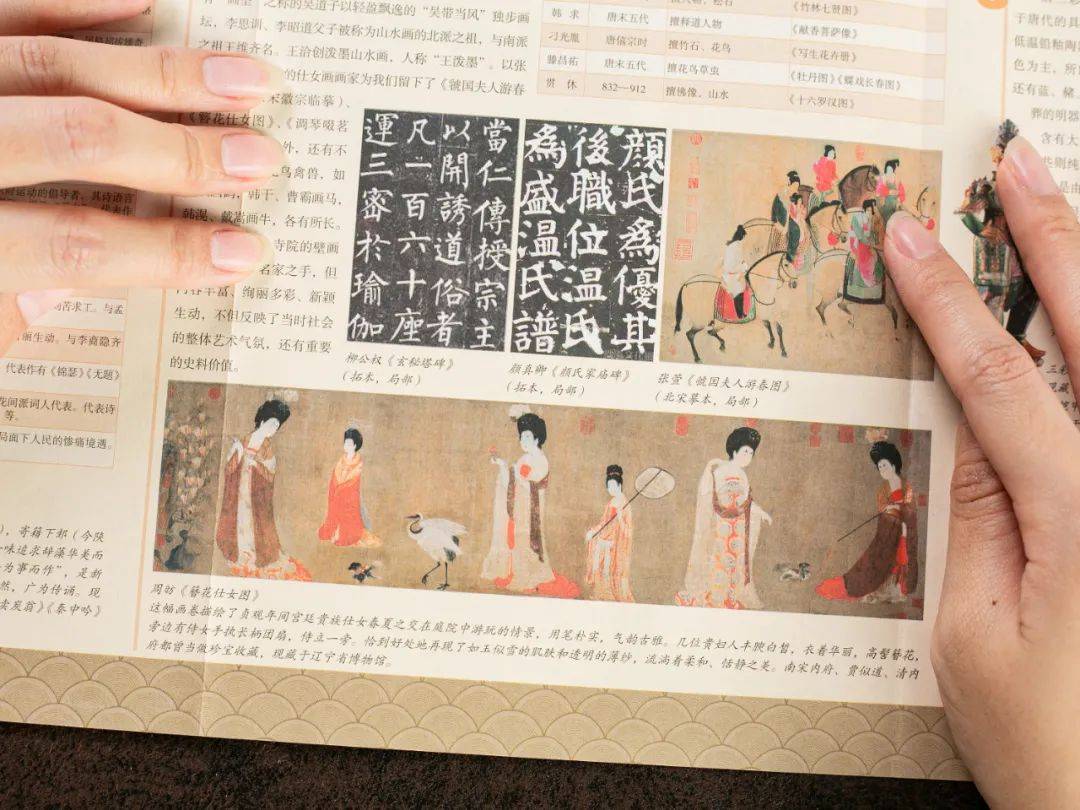 之称的吴道子以轻盈飘逸的“吴带当风”独步画
坛，李思训、李昭道父子被称为山水画的北派之祖，与南派
之祖王维齐名。王洽创泼墨山水画，人称“王泼墨”。以张
的仕女画画家为我们留下了《虢国夫人游春
宋徽宗临摹）、
《簪花仕女图》、《调琴啜茗
外，还有不
鸟禽兽，如
韩干、曹霸画马，
韩滉、戴嵩画牛，各有所长。
寺院的壁画
名家之手，但
内容丰富、绚丽多彩、新颖
生动，不但反映了当时社会
的整体艺术气氛，还有重要
的史料价值。
《竹林七贤图》
韩求 唐末五代 擅释道人物 《献香菩萨像》
刁光胤 唐僖宗时 擅竹石、花鸟 《写生花卉册》
滕昌祐 唐末五代 擅花鸟草虫 《牡丹图》《蝶戏长春图》
贯休 832—912 擅佛像、山水 《十六罗汉图》
當仁傳授宗主
以開誘道俗者
凡一百六十座
運三密於瑜伽
顏氏為優其
後職位溫氏
為盛溫氏譜
柳公权《玄秘塔碑》
（拓本，局部）
颜真卿《颜氏家庙碑》
（拓本，局部）
张萱《虢国夫人游春图》
（北宋摹本，局部）
周昉《簪花仕女图》
这幅画卷描绘了贞观年间宫廷贵族仕女春夏之交在庭院中游玩的情景，用笔朴实，气韵古雅。几位贵妇人丰腴白皙，衣着华丽，高髻簪花，
旁边有侍女手执长柄团扇，侍立一旁。恰到好处地再现了如玉似雪的肌肤和透明的薄纱，流淌着柔和、恬静之美。南宋内府、贾似道、清内
府都曾当做珍宝收藏，现藏于辽宁省博物馆。
运动的倡导者，其诗语言
苦求工。与孟
生动。与李商隐齐
代表作有《锦瑟》《无题》
花间派词人代表。代表诗
等。
局面下人民的惨痛境遇。
，寄籍下邽（今陕
味追求辞藻华美而
为事而作”，是新
然，广为传诵。现
卖炭翁》《秦中吟》
于唐代的具
低温铅釉陶
色为主，所
还有蓝、赭
葬的明器
含有大
些则纯
是由
三彩